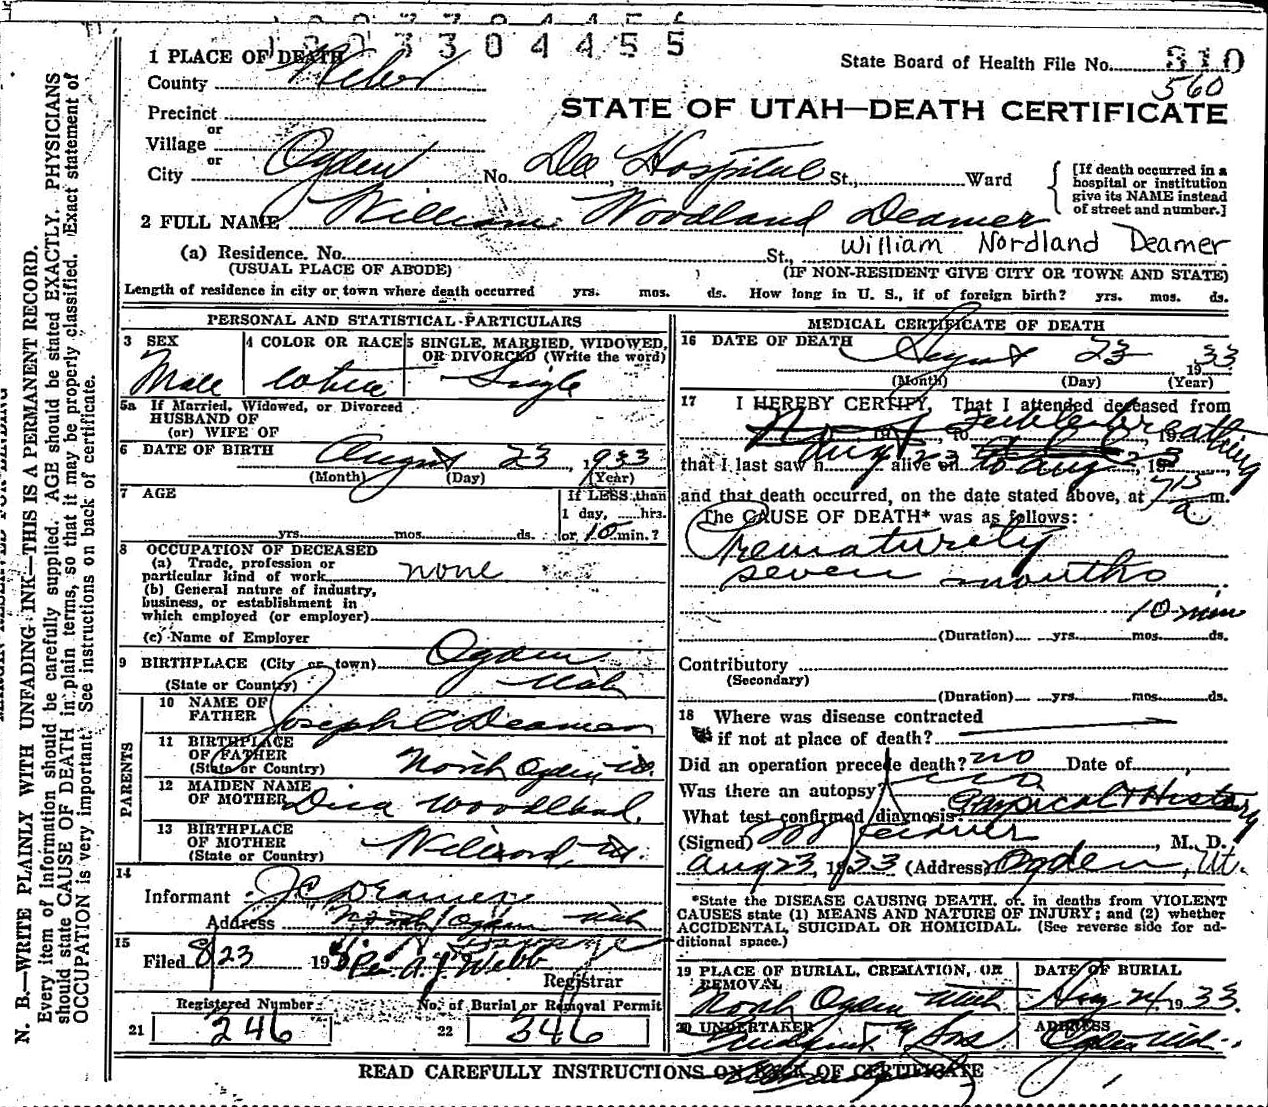 1 9 3 3 0 4 4 5 5
1 PLACE OF DEATH
County Weber
State Board of Health File No. 310
560
STATE OF UTAH—DEATH CERTIFICATE
Precinct
or
Village
or
City Ogden No. Dee Hospital St., Ward
[If death occurred in a
hospital or institution
give its NAME instead
of street and number.]
2 FULL NAME William Woodland Deamer
William Nordland Deamer
(a) Residence. No. St.,
(USUAL PLACE OF ABODE) (IF NON-RESIDENT GIVE CITY OR TOWN AND STATE)
Length of residence in city or town where death occurred yrs. mos. ds. How long in U. S., if of foreign birth? yrs. mos. ds.
PERSONAL AND STATISTICAL PARTICULARS
3 SEX
Male
4 COLOR OR RACE
White
5 SINGLE, MARRIED, WIDOWED,
OR DIVORCED (Write the word)
Single
5a If Married, Widowed, or Divorced
HUSBAND OF
(or) WIFE OF
6 DATE OF BIRTH August 23, 1933
(Month) (Day) (Year)
7 AGE
yrs. mos. ds.
If LESS than
1 day, hrs.
or 10 min.?
8 OCCUPATION OF DECEASED
(a) Trade, profession or
particular kind of work none
(b) General nature of industry,
business, or establishment in
which employed (or employer)
(c) Name of Employer
9 BIRTHPLACE (City or town) Ogden
(State or Country) Utah
PARENTS
10 NAME OF
FATHER Joseph C Deamer
11 BIRTHPLACE
OF FATHER
(State or Country) North Ogden Ut.
12 MAIDEN NAME
OF MOTHER Woodland
13 BIRTHPLACE
OF MOTHER
(State or Country) Willard, Ut.
14
Informant J C Deamer
Address North Ogden Utah
15
Filed 8/23 193
Per A. J. Webb
Registrar
Registered Number
21 246
No. of Burial or Removal Permit
22 346
MEDICAL CERTIFICATE OF DEATH
16 DATE OF DEATH August 23 1933
(Month) (Day) (Year)
17 I HEREBY CERTIFY, That I attended deceased from
, 19 , to , 19
Feeble breathing
that I last saw h alive on Aug 23 to Aug 23
and that death occurred, on the date stated above, at 7 15 a m.
The CAUSE OF DEATH* was as follows:
Prematurity
seven months
10 min
(Duration) yrs. mos. ds.
Contributory
(Secondary)
(Duration) yrs. mos. ds.
18 Where was disease contracted
if not at place of death?
Did an operation precede death? no Date of
Was there an autopsy? no
What test confirmed diagnosis? Physical & History
(Signed) , M. D.
Aug 23, 1933 (Address) Ogden, Ut.
*State the DISEASE CAUSING DEATH, or, in deaths from VIOLENT
CAUSES state (1) MEANS AND NATURE OF INJURY; and (2) whether
ACCIDENTAL, SUICIDAL OR HOMICIDAL. (See reverse side for ad-
ditional space.)
19 PLACE OF BURIAL, CREMATION, OR
REMOVAL
North Ogden Utah
DATE OF BURIAL
Aug 24 1933.
20 UNDERTAKER
& Sons
ADDRESS
Ogden Utah
READ CAREFULLY INSTRUCTIONS ON BACK OF CERTIFICATE
N. B.—WRITE PLAINLY WITH UNFADING INK—THIS IS A PERMANENT RECORD.
Every item of information should be carefully supplied. AGE should be stated EXACTLY. PHYSICIANS
should state CAUSE OF DEATH in plain terms, so that it may be properly classified. Exact statement of
OCCUPATION is very important. See instructions on back of certificate.